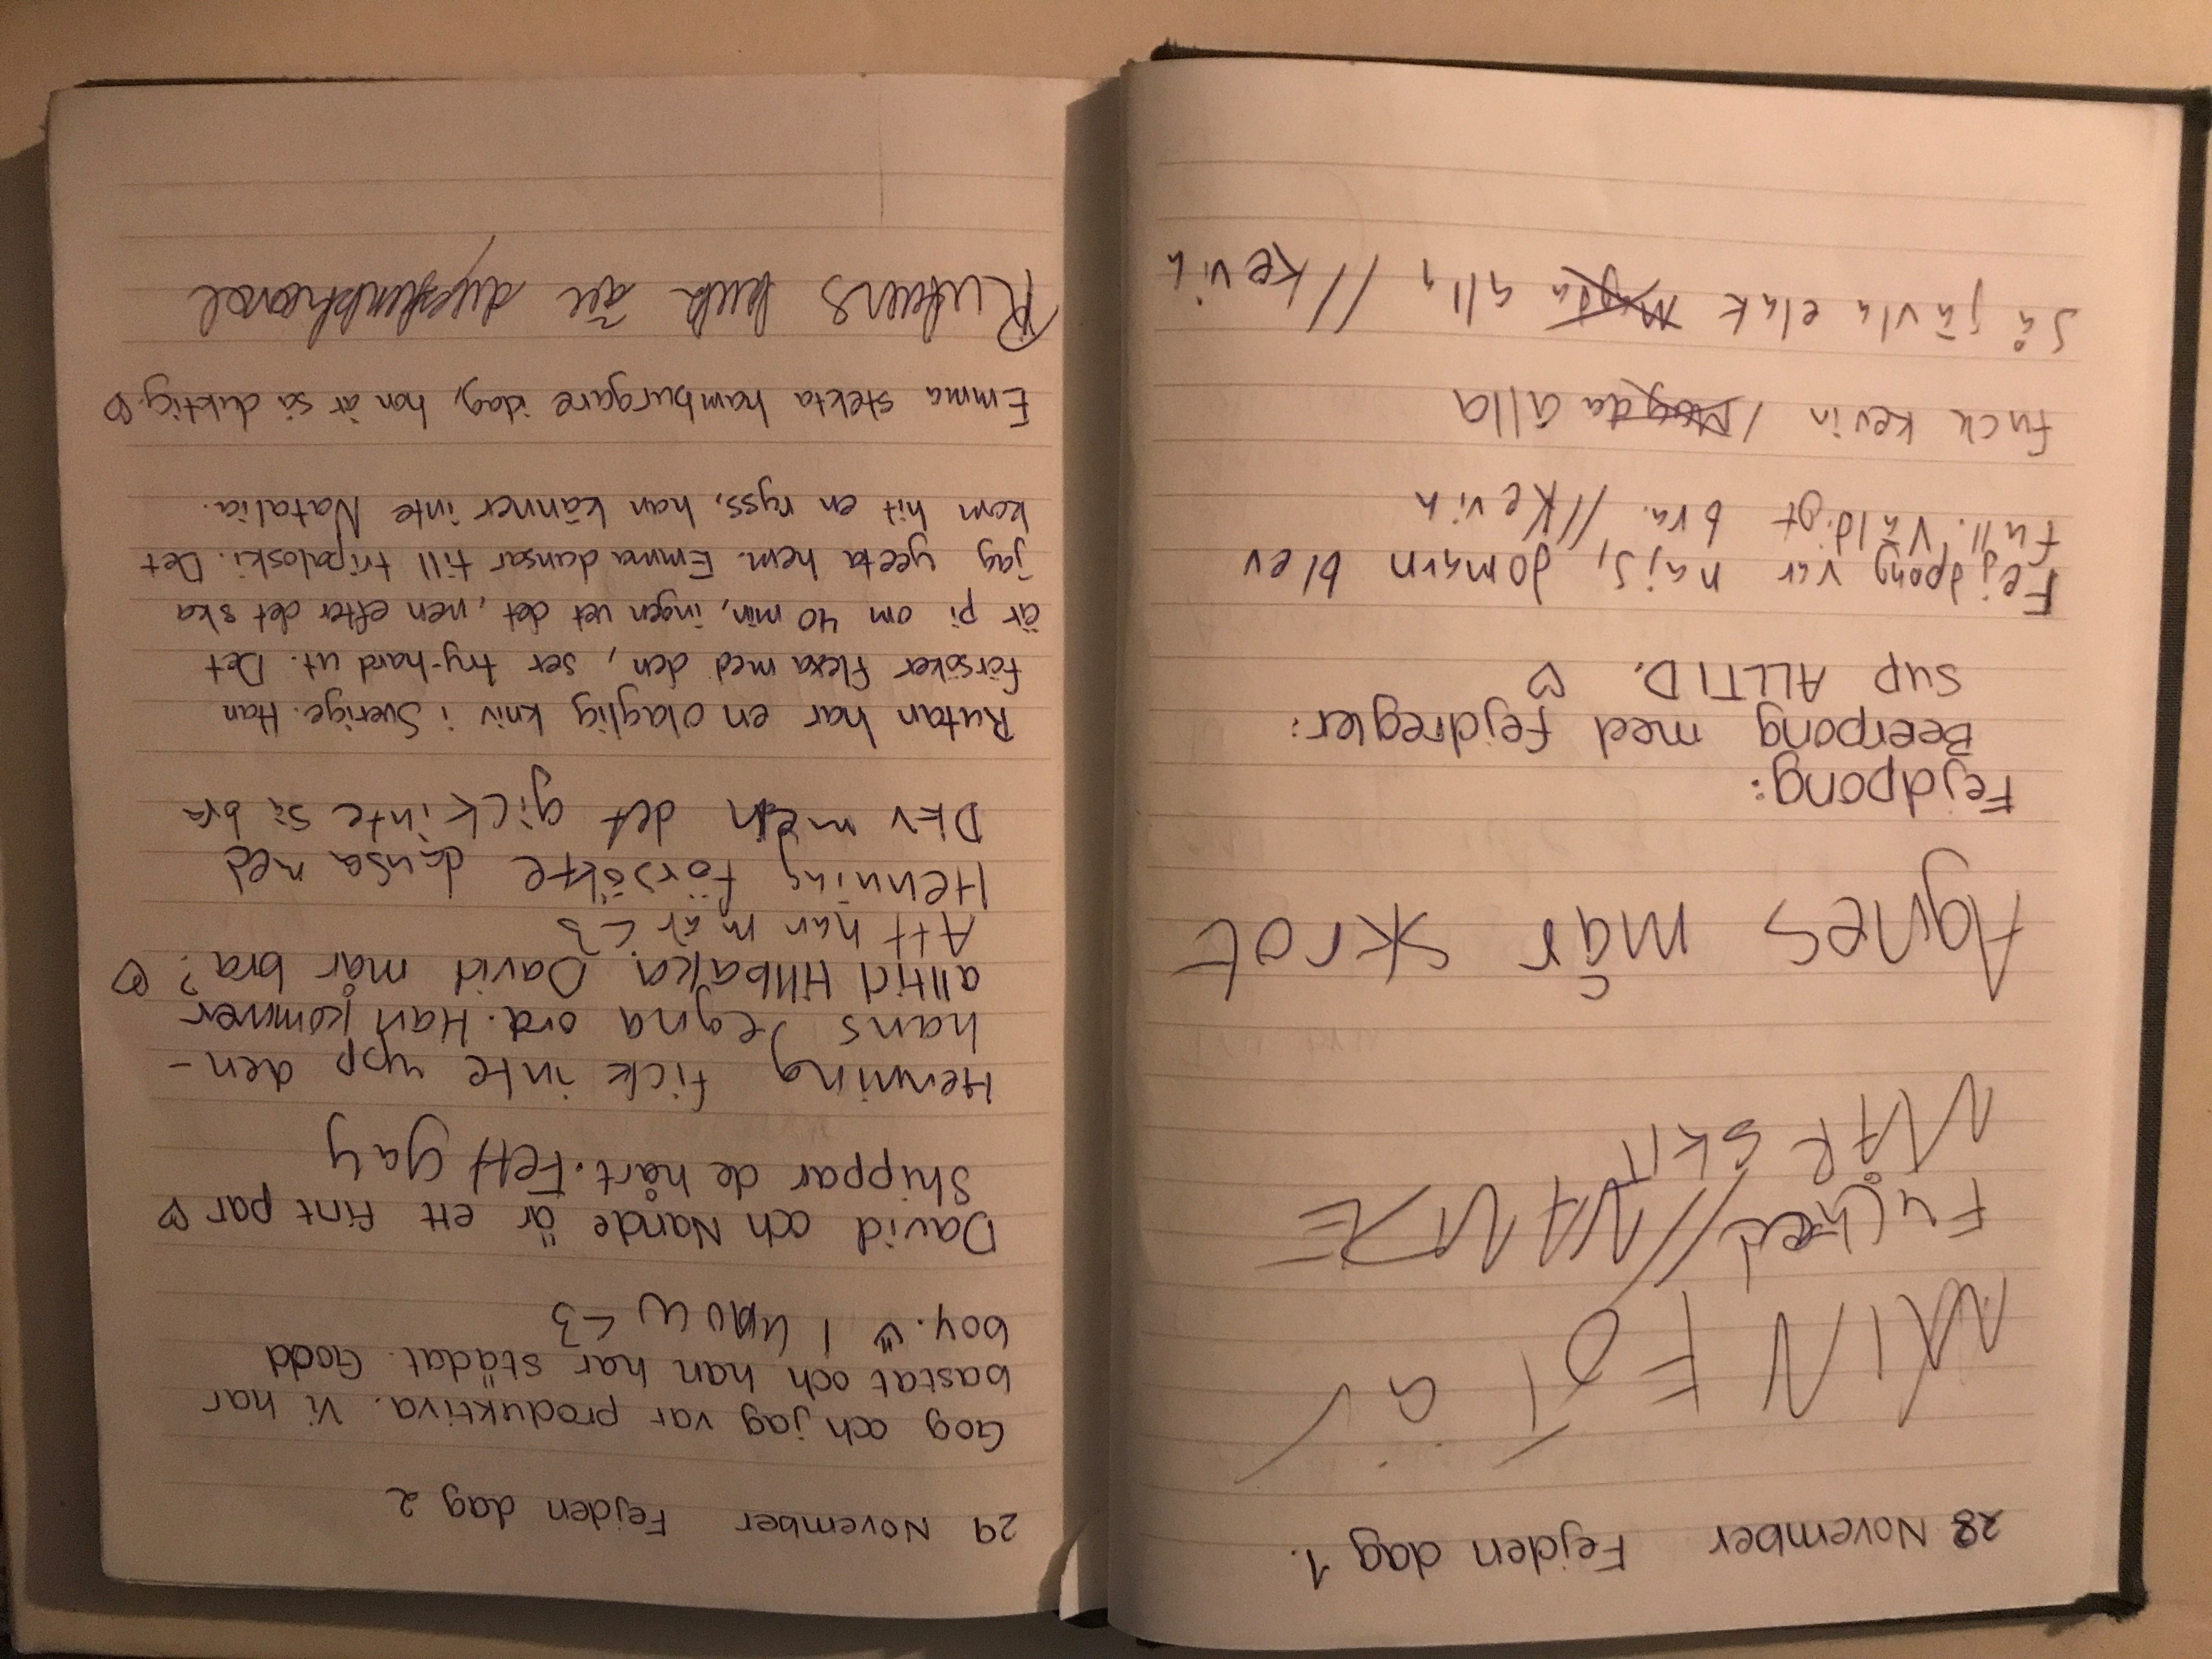 28 November Fejden dag 1.
MIN FOT är
Fucked //NAMRE
MÅR SKIT
Agnes mår skrot
Fejdpong:
Beerpong med fejdregler:
Sup ALLTID. ♡
Fejdpong var najs, domarn blev
full. Väldigt bra. //Kevin
Fuck kevin / alla
Så jävla elak alla //Kevin
29 November Fejden dag 2
Gog och jag var produktiva. Vi har
bastat och han har städat. Godd
boy. I know <3
David och Nande är ett fint par ♡
Shippar de hårt. Fett gay
Henning fick inte upp den-
hans egna ord. Han kommer
alltid tillbaka. David mår bra? ♡
Att han mår <3
Henning försökte dansa med
DEV men det gick inte så bra
Rutan har en olaglig kniv i Sverige. Han
försöker flexa med den, ser try-hard ut. Det
är pi om 40 min, ingen vet det, men efter det ska
jag yeeta hem. Emma dansar till tripaloski. Det
kom hit en ryss, han känner inte Natalia.
Emma stekta hamburgare idag, hon är så duktig. ♡